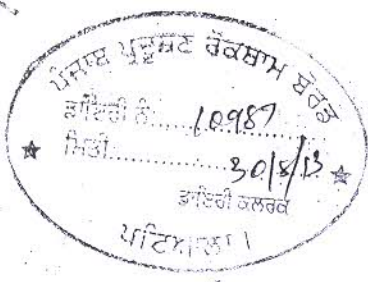 ਪੰਜਾਬ ਪ੍ਰਦੂਸ਼ਣ ਰੋਕਥਾਮ ਬੋਰਡ
ਡਾਇਰੀ ਨੰ:.....10987
ਮਿਤੀ.....30/8/13
ਡਾਇਰੀ ਕਲਰਕ
ਪਟਿਆਲਾ।